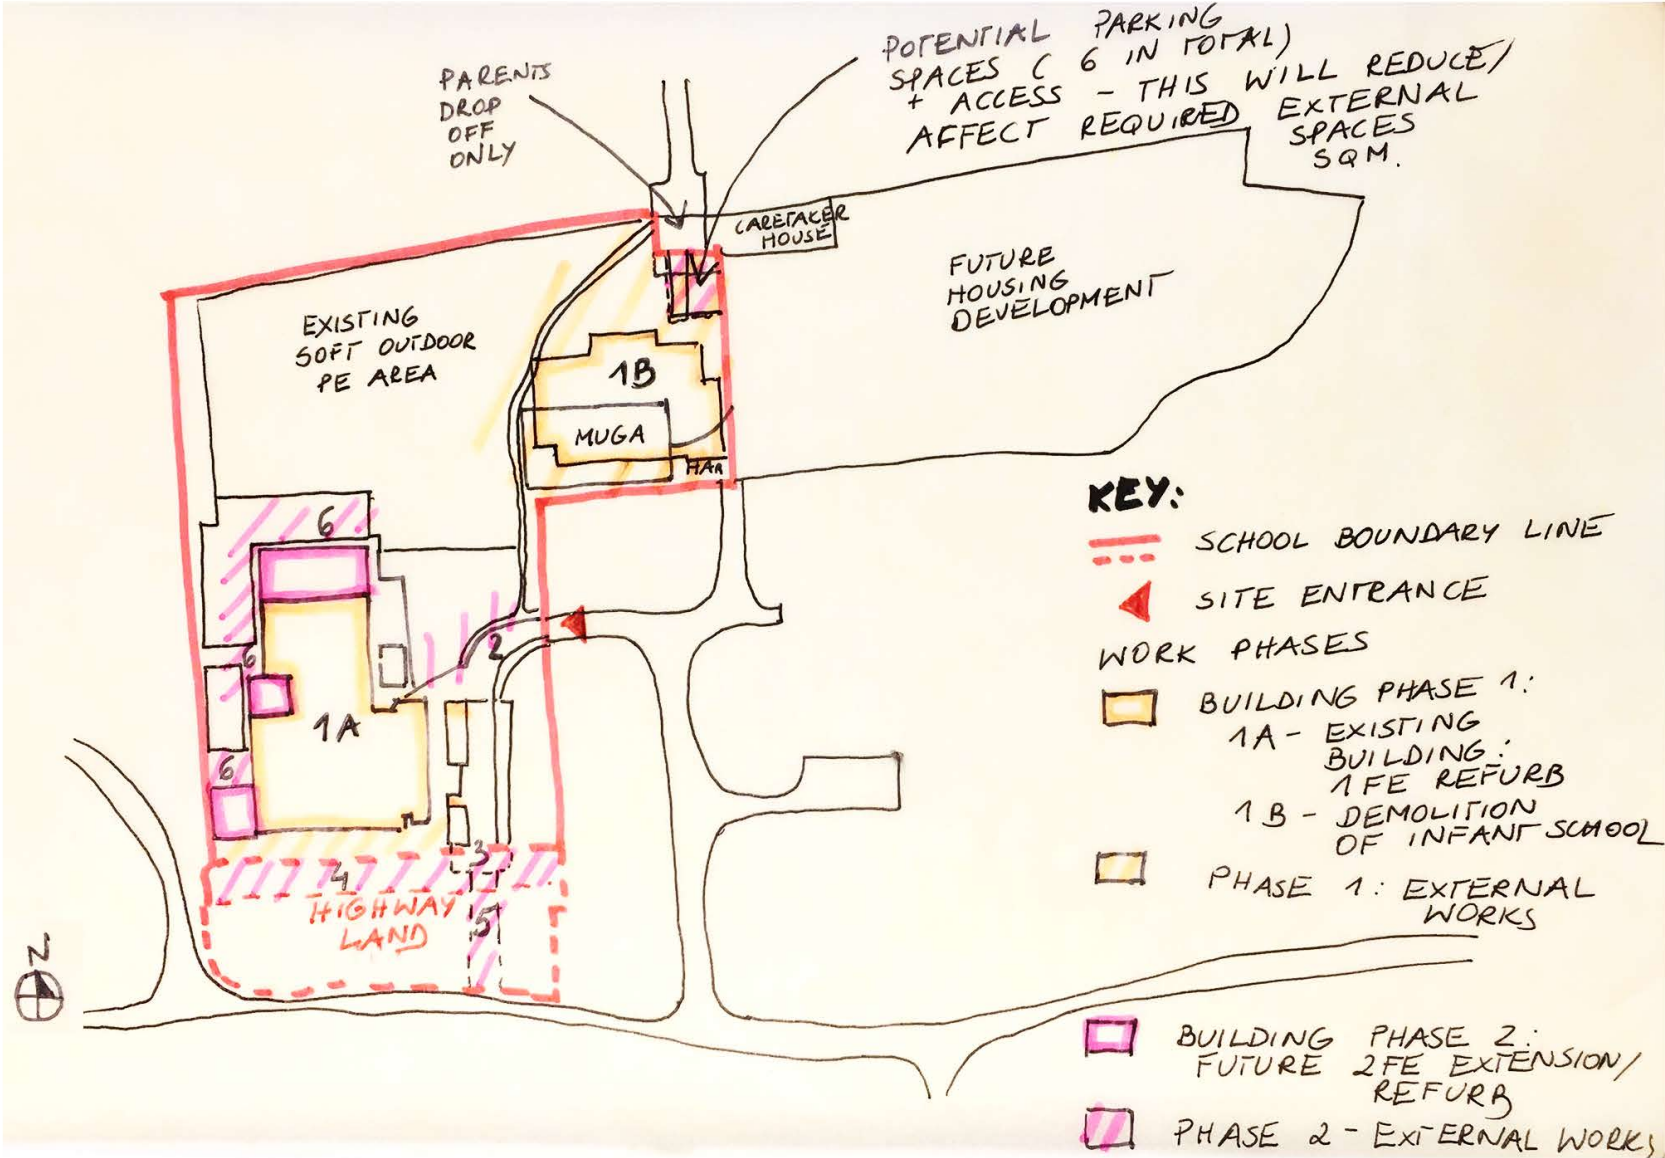 PARENTS
DROP
OFF
ONLY
POTENTIAL PARKING
SPACES ( 6 IN TOTAL)
+ ACCESS - THIS WILL REDUCE/
AFFECT REQUIRED EXTERNAL
SPACES
SQM.
CARETAKER
HOUSE
FUTURE
HOUSING
DEVELOPMENT
EXISTING
SOFT OUTDOOR
PE AREA
1B
MUGA
HAR
6
2
6
1A
6
3
4
5
HIGHWAY
LAND
N
KEY:
SCHOOL BOUNDARY LINE
SITE ENTRANCE
WORK PHASES
BUILDING PHASE 1:
1A - EXISTING
BUILDING:
1FE REFURB
1B - DEMOLITION
OF INFANT SCHOOL
PHASE 1: EXTERNAL
WORKS
BUILDING PHASE 2:
FUTURE 2FE EXTENSION/
REFURB
PHASE 2 - EXTERNAL WORKS